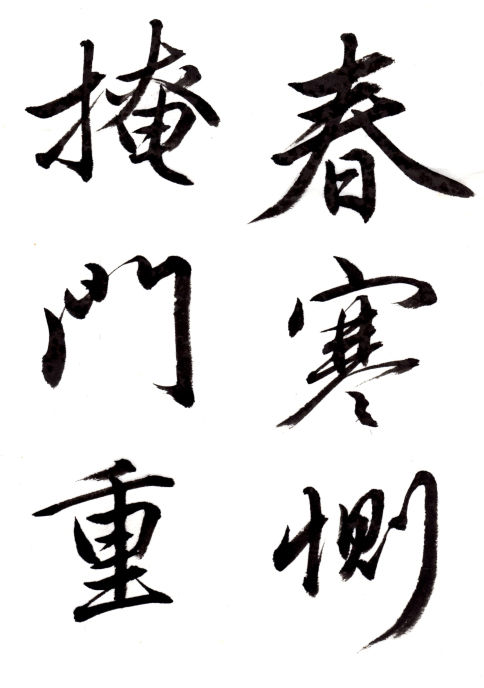 春寒惻
掩門重